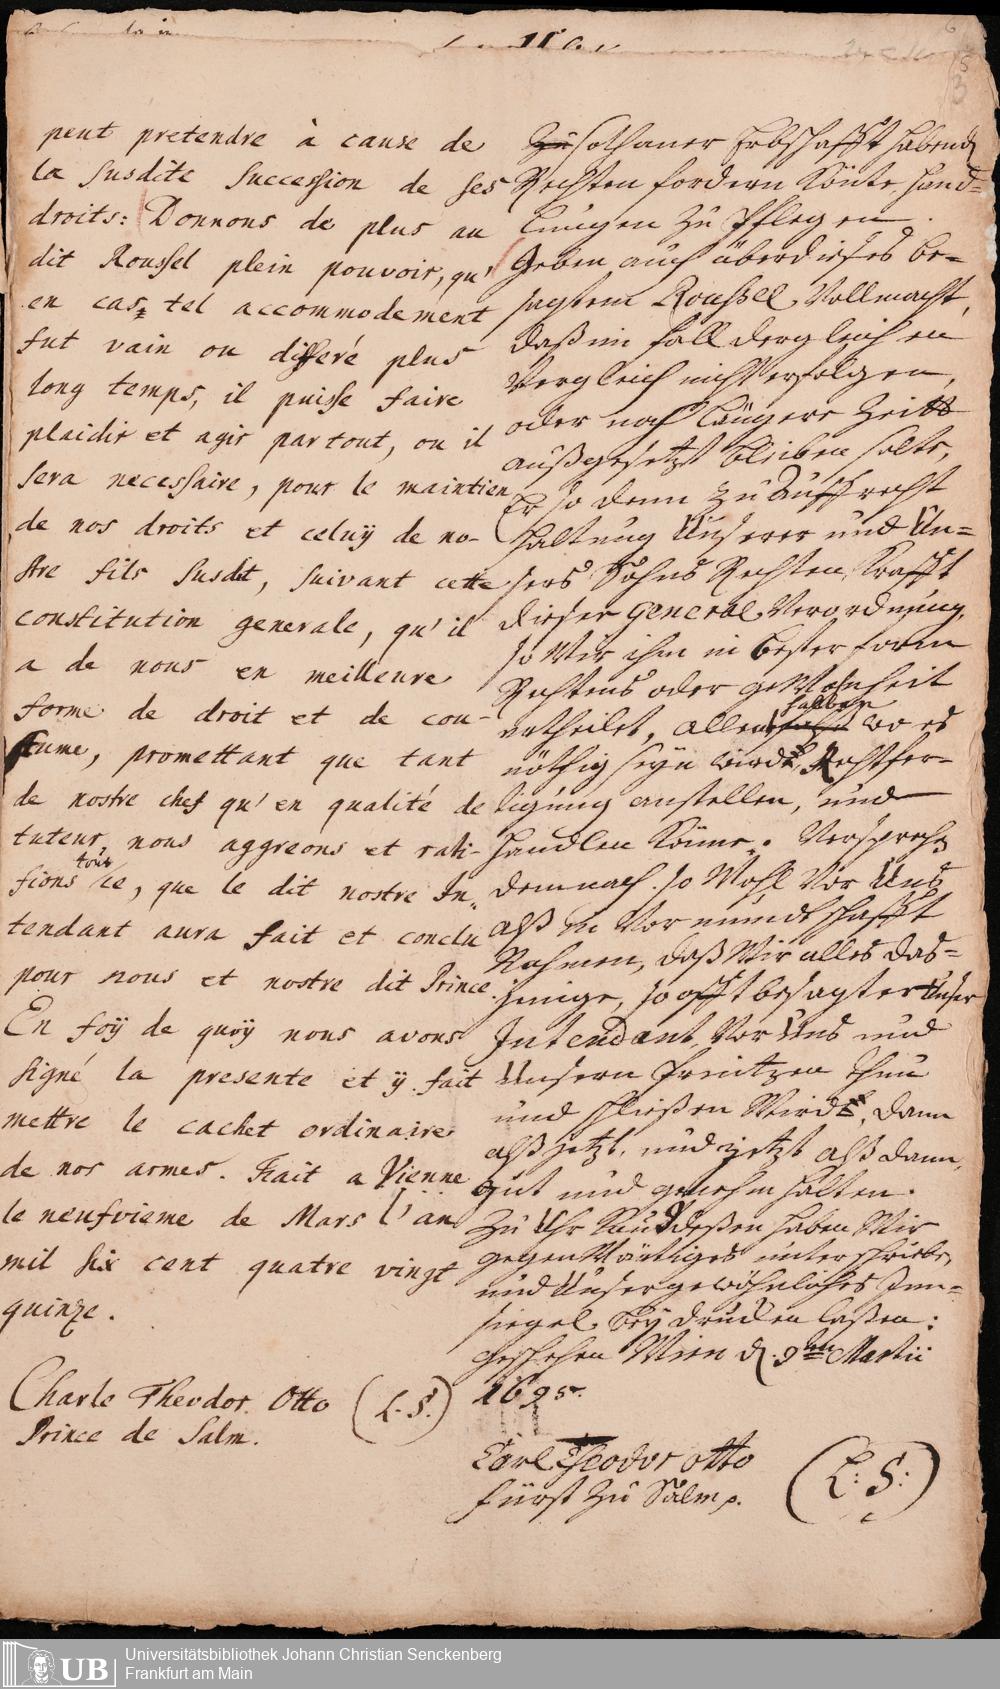 peut pretendre à cause de
la susdite succession de ses
droits: Donnons de plus au
dit Roussel plein pouvoir, qu'
en cas, tel accommodement
fut vain ou differé plus
long temps, il puisse faire
plaidir et agir par tout, ou il
sera necessaire, pour le maintien
de nos droits et celuÿ de no-
stre fils susdit, suivant cette
constitution generale, qu'il
a de nous en meilleure
forme de droit et de cou-
stume, promettant que tant
de nostre chef qu'en qualité de
tuteur nous aggreons et rati-
fions tout ce, que le dit nostre In-
tendant aura fait et conclu
pour nous et nostre dit Prince.
En foÿ de quoÿ nous avons
signé la presente et ÿ fait
mettre le cachet ordinaire
de nos armes. Fait a Vienne
le neufvieme de Mars l'an
mil six cent quatre vingt
quinze.
Charle Theodor Otto (L. S.)
Prince de Salm.
zu sothaner Erbschafft habend
Rechten fordern könte hand-
lungen zu Pflegen.
Geben auch überdieses be-
sagtem Roussel Vollmacht,
daß im fall dergleichen
Vergleich nicht erfolgen,
oder noch längere Zeit
außgesetzt bleiben solte,
Er so denn zu Auffrecht
haltung Unserer und Un-
sers Sohns Rechten, Krafft
dieser General Verordnung,
so Wir ihm in bester form
Rechtens oder gewohnheit
ertheilet, allenthalben wo es
nöthig seyn wird, Rechtfer-
tigung anstellen, und
handlen könne. Versprech
demnach so Wohl Vor Uns
alß in Vormundtschafft
Nahmen, daß Wir alles das-
jenige, so offt besagter Unser
Intendant, Vor Uns und
Unsern Printzen thun
und schließen Wird, dann
alß jetzt, und jetzt alß dann,
gut und genehm halten.
Zu Uhrkund deßen haben Wir
gegenwärtiges unterschrieben
und Unser gewöhnliches Inn-
siegel beÿ drucken laßen:
Geschehen Wien d. 9ten Martii
1695.
Carl Theodor Otto
Fürst zu Salm p. (L: S:)
Universitätsbibliothek Johann Christian Senckenberg
Frankfurt am Main
UB